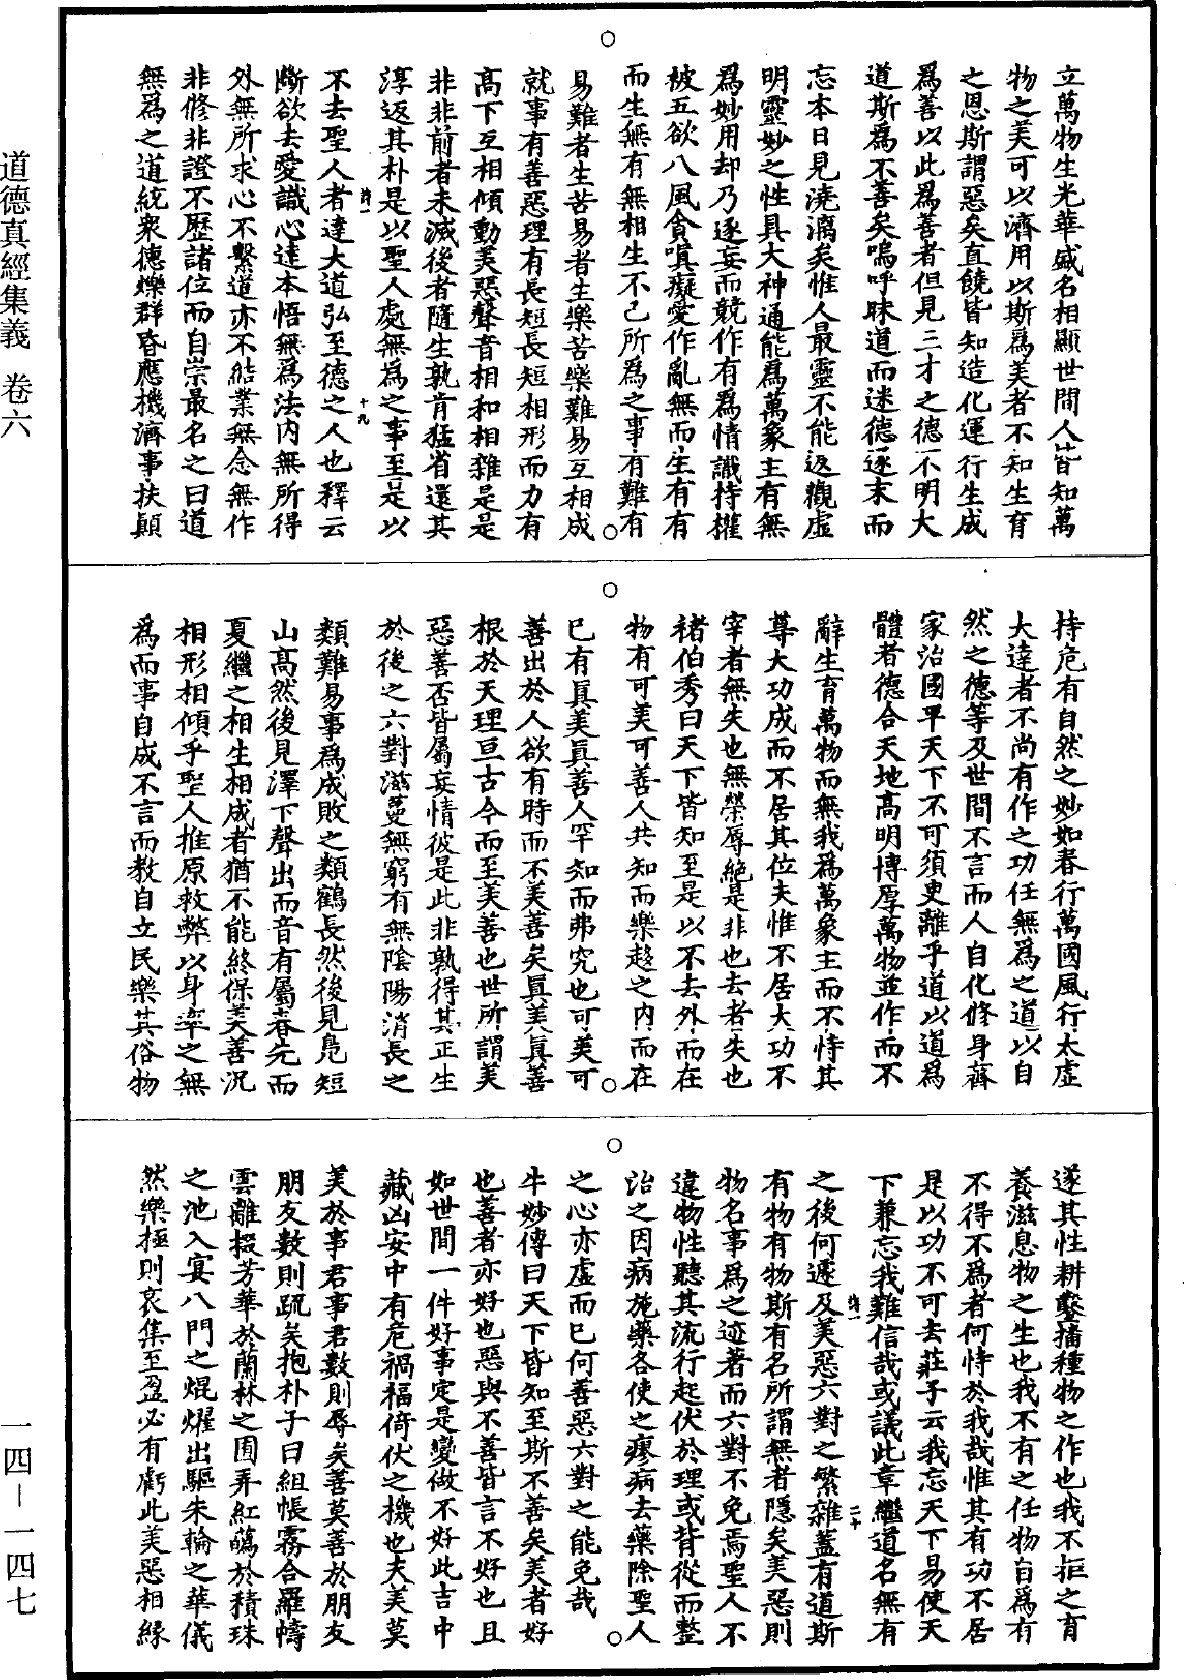 立萬物生光華盛名相顯世間人皆知萬
物之美可以濟用以斯爲美者不知生育
之恩斯謂惡矣直饒皆知造化運行生成
爲善以此爲善者但見三才之德不明大
道斯爲不善矣嗚呼昧道而迷德逐末而
忘本日見澆漓矣惟人最靈不能返觀虛
明靈妙之性具大神通能爲萬象主有無
爲妙用却乃逐妄而競作有爲情識持權
被五欲八風貪嗔癡愛作亂無而生有有
而生無有無相生不已所爲之事有難有
易難者生苦易者生樂苦樂難易互相成
就事有善惡理有長短長短相形而力有
高下互相傾動美惡聲音相和相雜是是
非非前者未滅後者隨生孰肯猛省還其
淳返其朴是以聖人處無爲之事至是以
不去聖人者達大道弘至德之人也釋云
斷欲去愛識心達本悟無爲法内無所得
外無所求心不繫道亦不結業無念無作
非修非證不歷諸位而自崇最名之曰道
無爲之道統衆德爍群昏應機濟事扶顛
持危有自然之妙如春行萬國風行太虛
大達者不尚有作之功任無爲之道以自
然之德等及世間不言而人自化修身齊
家治國平天下不可須臾離乎道以道爲
體者德合天地高明博厚萬物並作而不
辭生育萬物而無我爲萬象主而不恃其
尊大功成而不居其位夫惟不居大功不
宰者無失也無榮辱絶是非也去者失也
褚伯秀曰天下皆知至是以不去外而在
物有可美可善人共知而樂趍之内而在
已有眞美眞善人罕知而弗究也可美可
善出於人欲有時而不美善矣眞美眞善
根於天理亘古今而至美善也世所謂美
惡善否皆屬妄情彼是此非孰得其正生
於後之六對滋蔓無窮有無陰陽消長之
類難易事爲成敗之類鶴長然後見鳧短
山高然後見澤下聲出而音有屬春先而
夏繼之相生相成者猶不能終保美善况
相形相傾乎聖人推原救弊以身率之無
爲而事自成不言而教自立民樂其俗物
遂其性耕鑿播種物之作也我不拒之育
養滋息物之生也我不有之任物自爲有
不得不爲者何恃於我哉惟其有功不居
是以功不可去莊子云我忘天下易使天
下兼忘我難信哉或議此章繼道名無有
之後何遽及美惡六對之繁雜蓋有道斯
有物有物斯有名所謂無者隱矣美惡則
物名事爲之迹著而六對不免焉聖人不
違物性聽其流行起伏於理或背從而整
治之因病施藥各使之瘳病去藥除聖人
之心亦虛而已何善惡六對之能免哉
牛妙傳曰天下皆知至斯不善矣美者好
也善者亦好也惡與不善皆言不好也且
如世間一件好事定是變做不好此吉中
藏凶安中有危禍福倚伏之機也夫美莫
美於事君事君數則辱矣善莫善於朋友
朋友數則疏矣抱朴子曰組帳霧合羅幬
雲離掇芳華於蘭林之囿弄紅蘤於積珠
之池入宴八門之焜燿出驅朱輪之華儀
然樂極則哀集至盈必有虧此美惡相緣
詩一
十九
詩一
二十
道德真經集義　卷六
一四－一四七